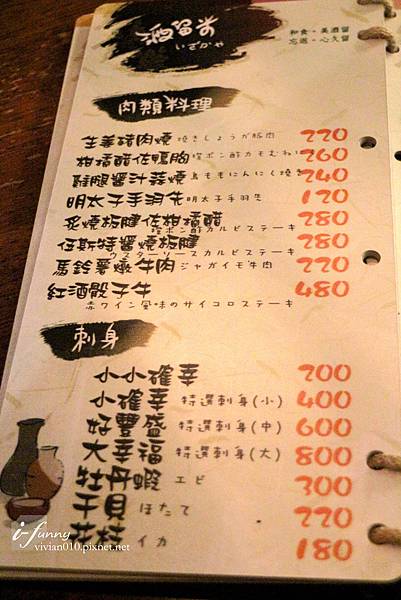 酒留米
いざかや
和食・美酒留
忘返・心久留
肉類料理
生姜豬肉燒 焼きしょうが豚肉 220
柑橘醋佐鴨胸 ポン酢カモむね 260
雞腿醬汁蒜燒 鳥ももにんにく焼き 240
明太子手羽先 明太子手羽先 120
炙燒板腱佐柑橘醋 280
ポン酢カルビステーキ
伍斯特醬燒板腱 280
ウスターソースカルビステーキ
馬鈴薯燉牛肉 ジャガイモ牛肉 220
紅酒骰子牛 480
赤ワイン風味のサイコロステーキ
刺身
小小確幸 200
小確幸 特選刺身(小) 400
好豐盛 特選刺身(中) 600
大幸福 特選刺身(大) 800
牡丹蝦 エビ 300
干貝 ほたて 220
花枝 イカ 180
i-funny
vivian010.pixnet.net